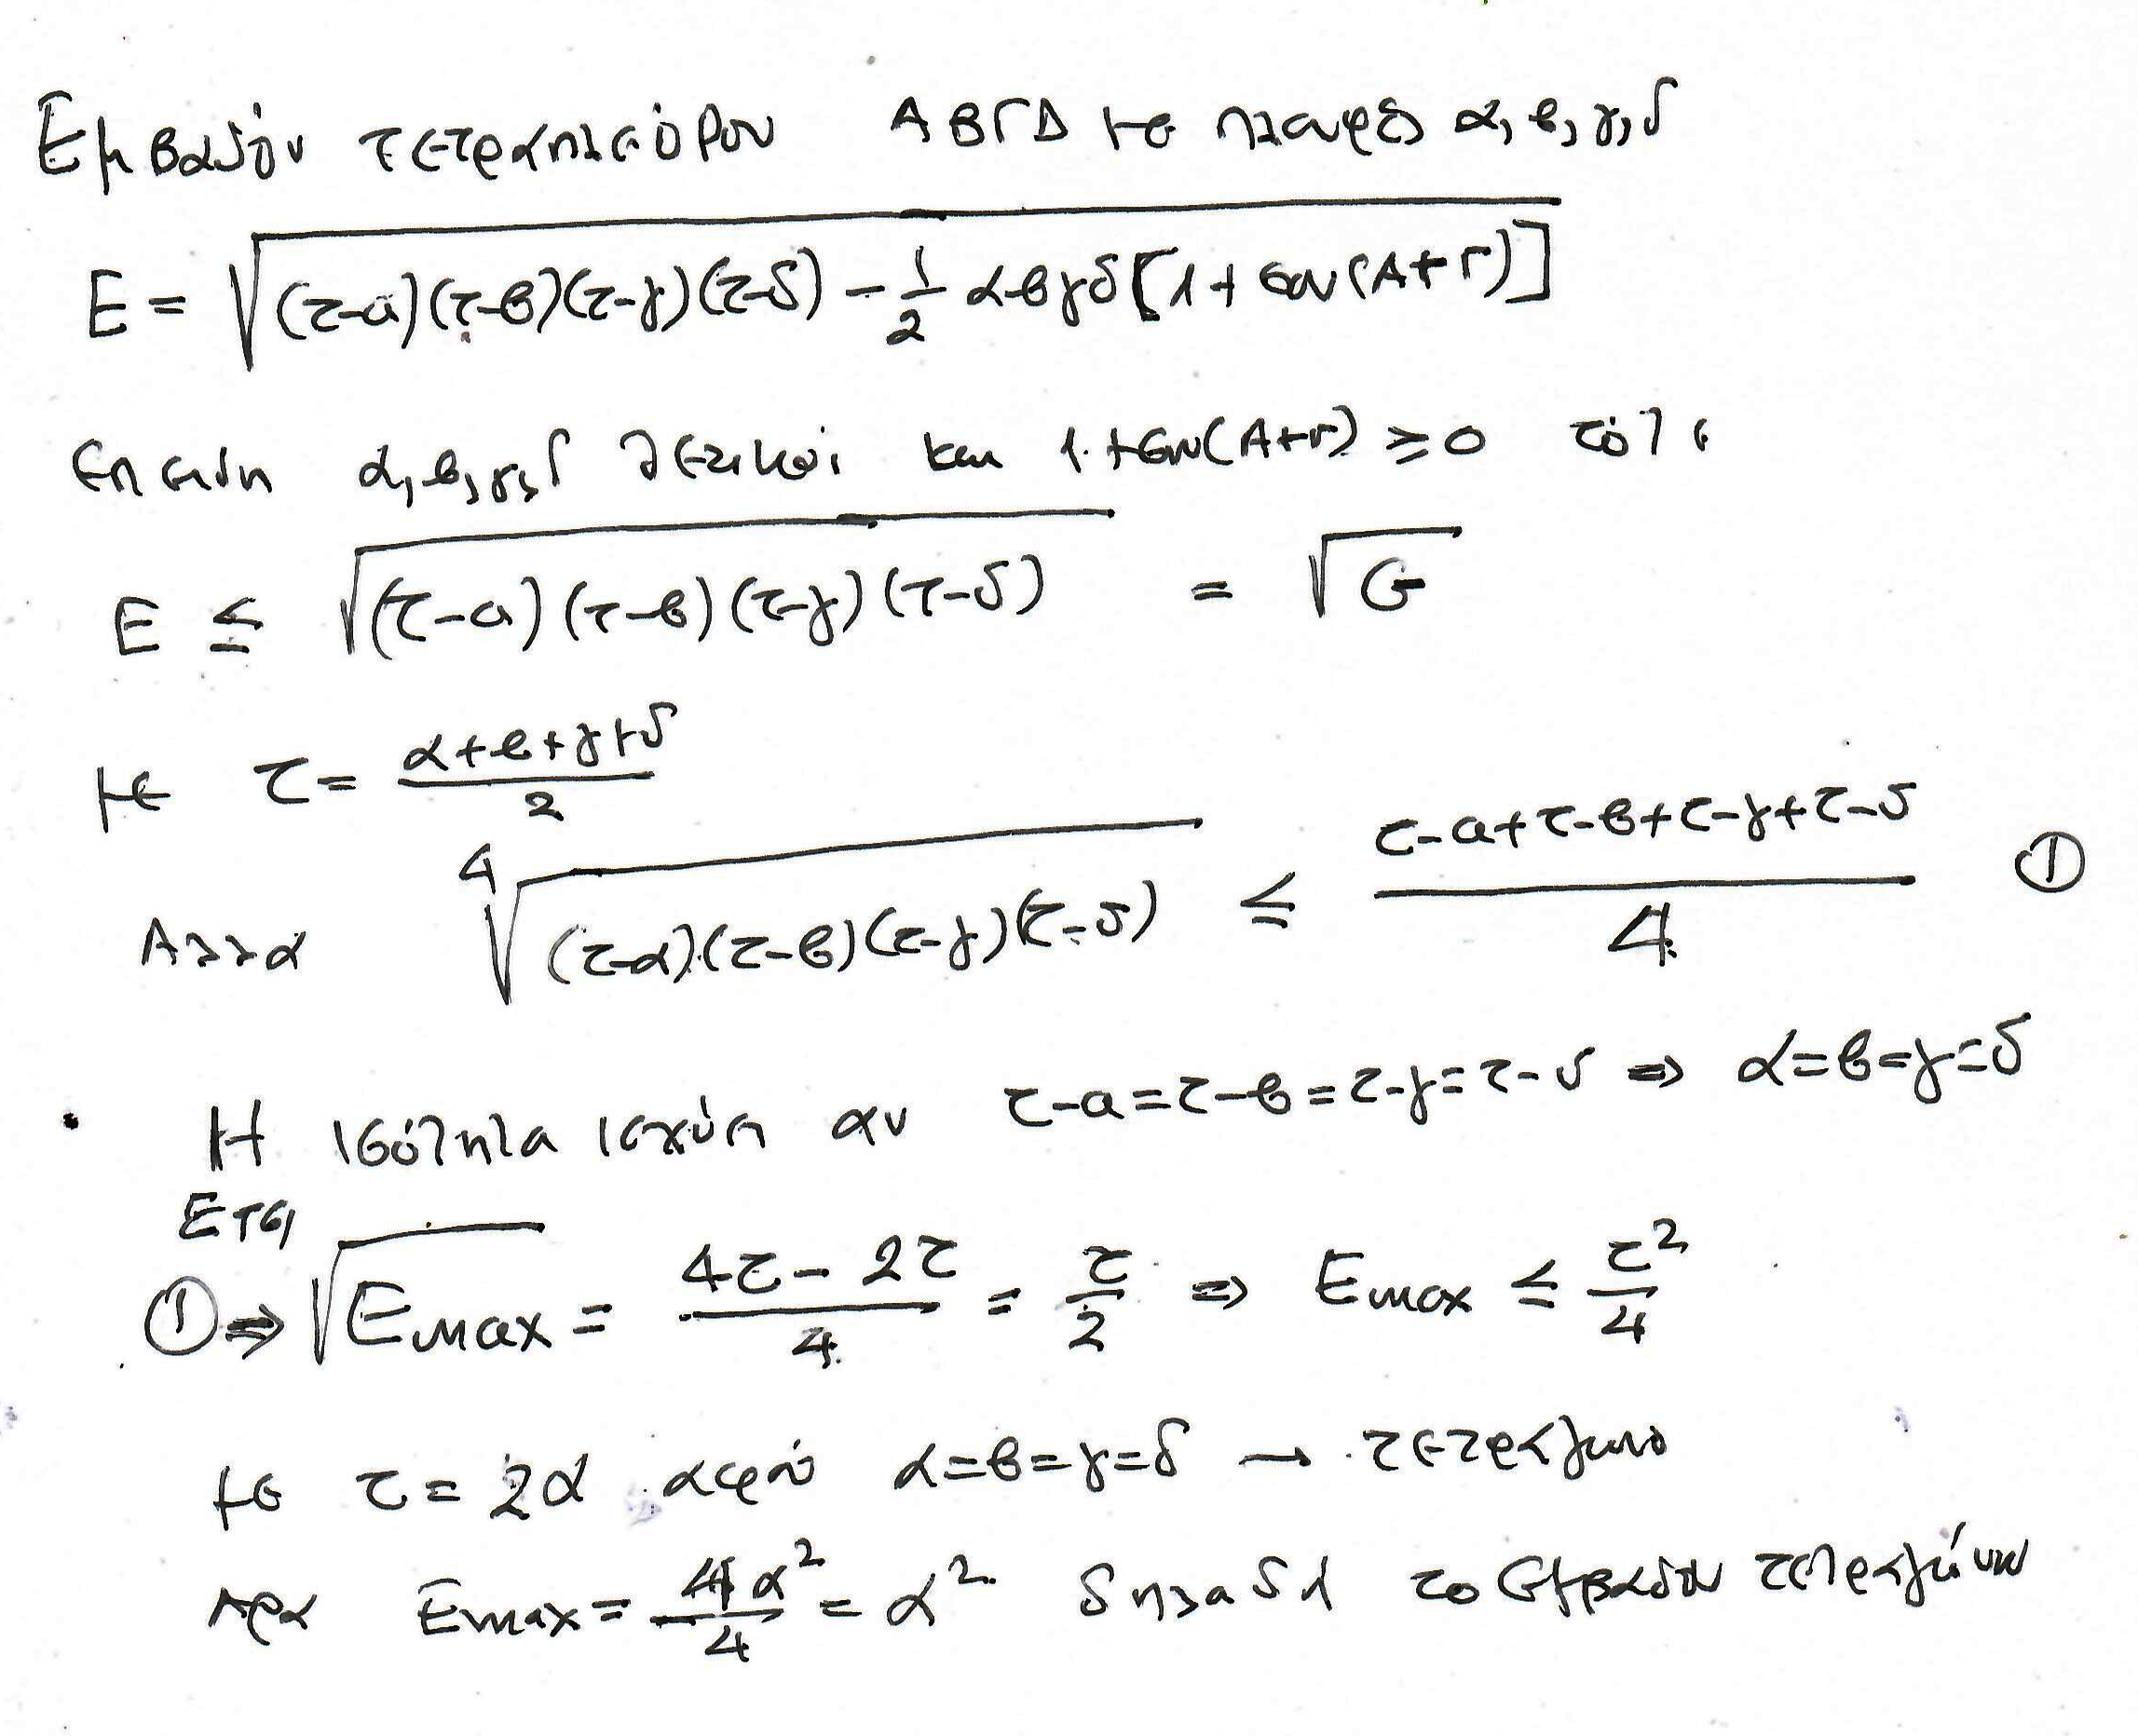 Εμβαδόν τετραπλεύρου ΑΒΓΔ με πλευρές α, β, γ, δ
E = √((τ-α)(τ-β)(τ-γ)(τ-δ) - 1/2 αβγδ[1+συν(Α+Γ)])
επειδή α, β, γ, δ θετικοί και 1+συν(Α+Γ) ≥ 0 τότε
E ≤ √((τ-α)(τ-β)(τ-γ)(τ-δ)) = √G
με τ = (α+β+γ+δ)/2
Αλλα ∜((τ-α)(τ-β)(τ-γ)(τ-δ)) ≤ (τ-α+τ-β+τ-γ+τ-δ)/4 ①
Η ισότητα ισχύει αν τ-α=τ-β=τ-γ=τ-δ ⇒ α=β=γ=δ
Ετσι
① ⇒ √Emax = (4τ-2τ)/4 = τ/2 ⇒ Emax ≤ τ²/4
με τ = 2α αφού α=β=γ=δ → τετράγωνο
Αρα Emax = 4α²/4 = α² δηλαδή το εμβαδόν τετραγώνου